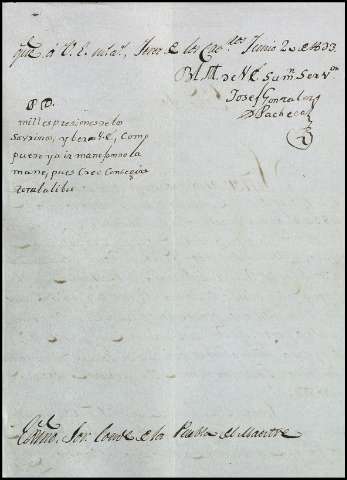 que á V. E. m.s a.s, Jerez de los Cav.ros Junio 2 de 1833
B. L. M. de V. E. su m.r Serv.or
Josef Gonzalez
D Pacheco
P. D.
mill espresiones de lo
Savrinos, y vera V. E, Como
puere ya ir manejonno la
mano, pues Creo Conseguir
Exmo. Sor. Conde de la Puebla del Maestre